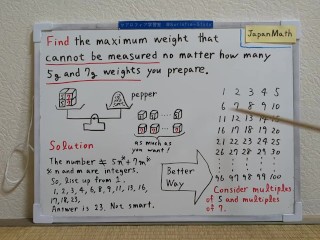 JapanMath
Find the maximum weight that
cannot be measured no matter how many
5g and 7g weights you prepare.
pepper
as much as
you want!
Solution
The number ≠ 5n + 7m
※ n and m are integers.
So, list up from 1.
1, 2, 3, 4, 6, 8, 9, 11, 13, 16,
17, 18, 23,
Answer is 23. Not smart.
Better
Way
1 2 3 4 5
6 7 8 9 10
11 12 13 14 15
16 17 18 19 20
21 22 23 24 25
26 27 28 29 30
96 97 98 99 100
Consider multiples
of 5 and multiples
of 7.